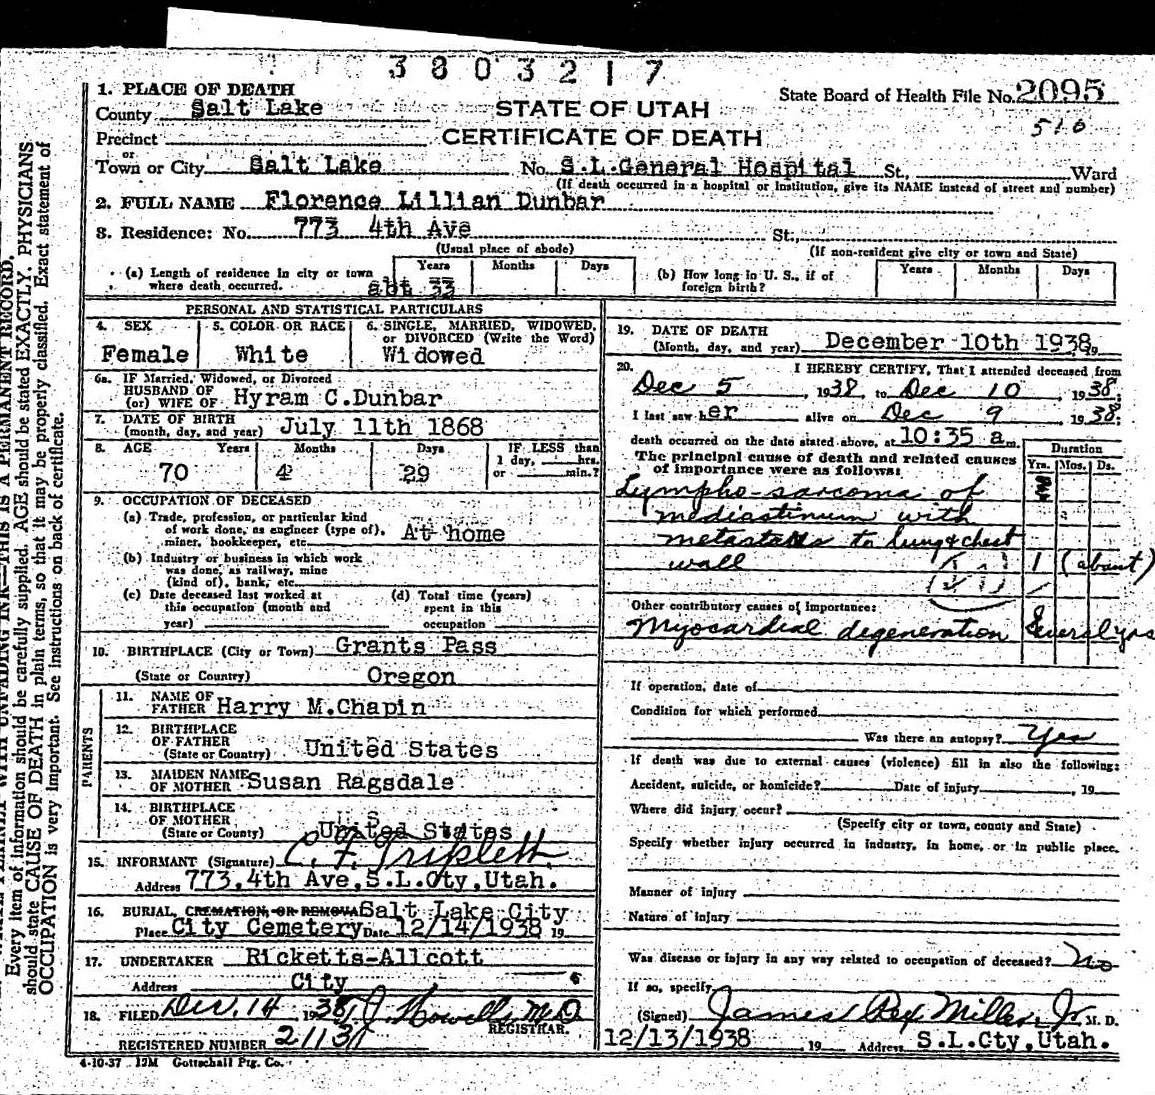 3803217
1. PLACE OF DEATH
State Board of Health File No. 2095
County Salt Lake
STATE OF UTAH
510
Precinct
CERTIFICATE OF DEATH
or
Town or City Salt Lake No. S.L.General Hospital St., Ward
(If death occurred in a hospital or institution, give its NAME instead of street and number)
2. FULL NAME Florence Lillian Dunbar
3. Residence: No. 773 4th Ave St.,
(Usual place of abode) (If non-resident give city or town and State)
(a) Length of residence in city or town where death occurred. Years Months Days
abt 33
(b) How long in U. S., if of foreign birth? Years Months Days
PERSONAL AND STATISTICAL PARTICULARS
4. SEX 5. COLOR OR RACE 6. SINGLE, MARRIED, WIDOWED, or DIVORCED (Write the Word)
Female White Widowed
6a. IF Married, Widowed, or Divorced
HUSBAND OF
(or) WIFE OF Hyram C.Dunbar
7. DATE OF BIRTH
(month, day, and year) July 11th 1868
8. AGE Years Months Days IF LESS than
1 day, hrs.
or min.?
70 4 29
9. OCCUPATION OF DECEASED
(a) Trade, profession, or particular kind
of work done, as engineer (type of),
miner, bookkeeper, etc. At home
(b) Industry or business in which work
was done, as railway, mine
(kind of), bank, etc.
(c) Date deceased last worked at
this occupation (month and
year)
(d) Total time (years)
spent in this
occupation
10. BIRTHPLACE (City or Town) Grants Pass
(State or Country) Oregon
PARENTS
11. NAME OF
FATHER Harry M.Chapin
12. BIRTHPLACE
OF FATHER
(State or Country) United States
13. MAIDEN NAME
OF MOTHER Susan Ragsdale
14. BIRTHPLACE
OF MOTHER
(State or County) United States
15. INFORMANT (Signature) C. F. Triplett
Address 773.4th Ave.S.L.Cty.Utah.
16. BURIAL, CREMATION, OR REMOVAL Salt Lake City
Place City Cemetery Date 12/14/1938 19
17. UNDERTAKER Ricketts-Allcott
Address City
18. FILED Dec. 14 1938 Howells M.D.
REGISTRAR.
REGISTERED NUMBER
4-10-37 12M Gottschall Ptg. Co.
19. DATE OF DEATH
(Month, day, and year) December 10th 1938 19
20. I HEREBY CERTIFY, That I attended deceased from
Dec 5, 1938, to Dec 10, 1938;
I last saw her alive on Dec 9, 1938;
death occurred on the date stated above, at 10:35 am.
The principal cause of death and related causes
of importance were as follows:
Duration
Yrs. Mos. Ds.
Lympho-sarcoma of
mediastinum with
metastasis to lung & chest
wall 1 (about)
Other contributory causes of importance:
Myocardial degeneration Several yrs
If operation, date of
Condition for which performed
Was there an autopsy? Yes
If death was due to external causes (violence) fill in also the following:
Accident, suicide, or homicide? Date of injury , 19
Where did injury occur?
(Specify city or town, county and State)
Specify whether injury occurred in industry, in home, or in public place.
Manner of injury
Nature of injury
Was disease or injury in any way related to occupation of deceased? No
If so, specify
(Signed) James Rex Miller Jr. M. D.
12/13/1938 , 19 Address S.L.Cty,Utah.
Every item of information should be carefully supplied. AGE should be stated EXACTLY. PHYSICIANS
should state CAUSE OF DEATH in plain terms, so that it may be properly classified. Exact statement of
OCCUPATION is very important. See instructions on back of certificate.